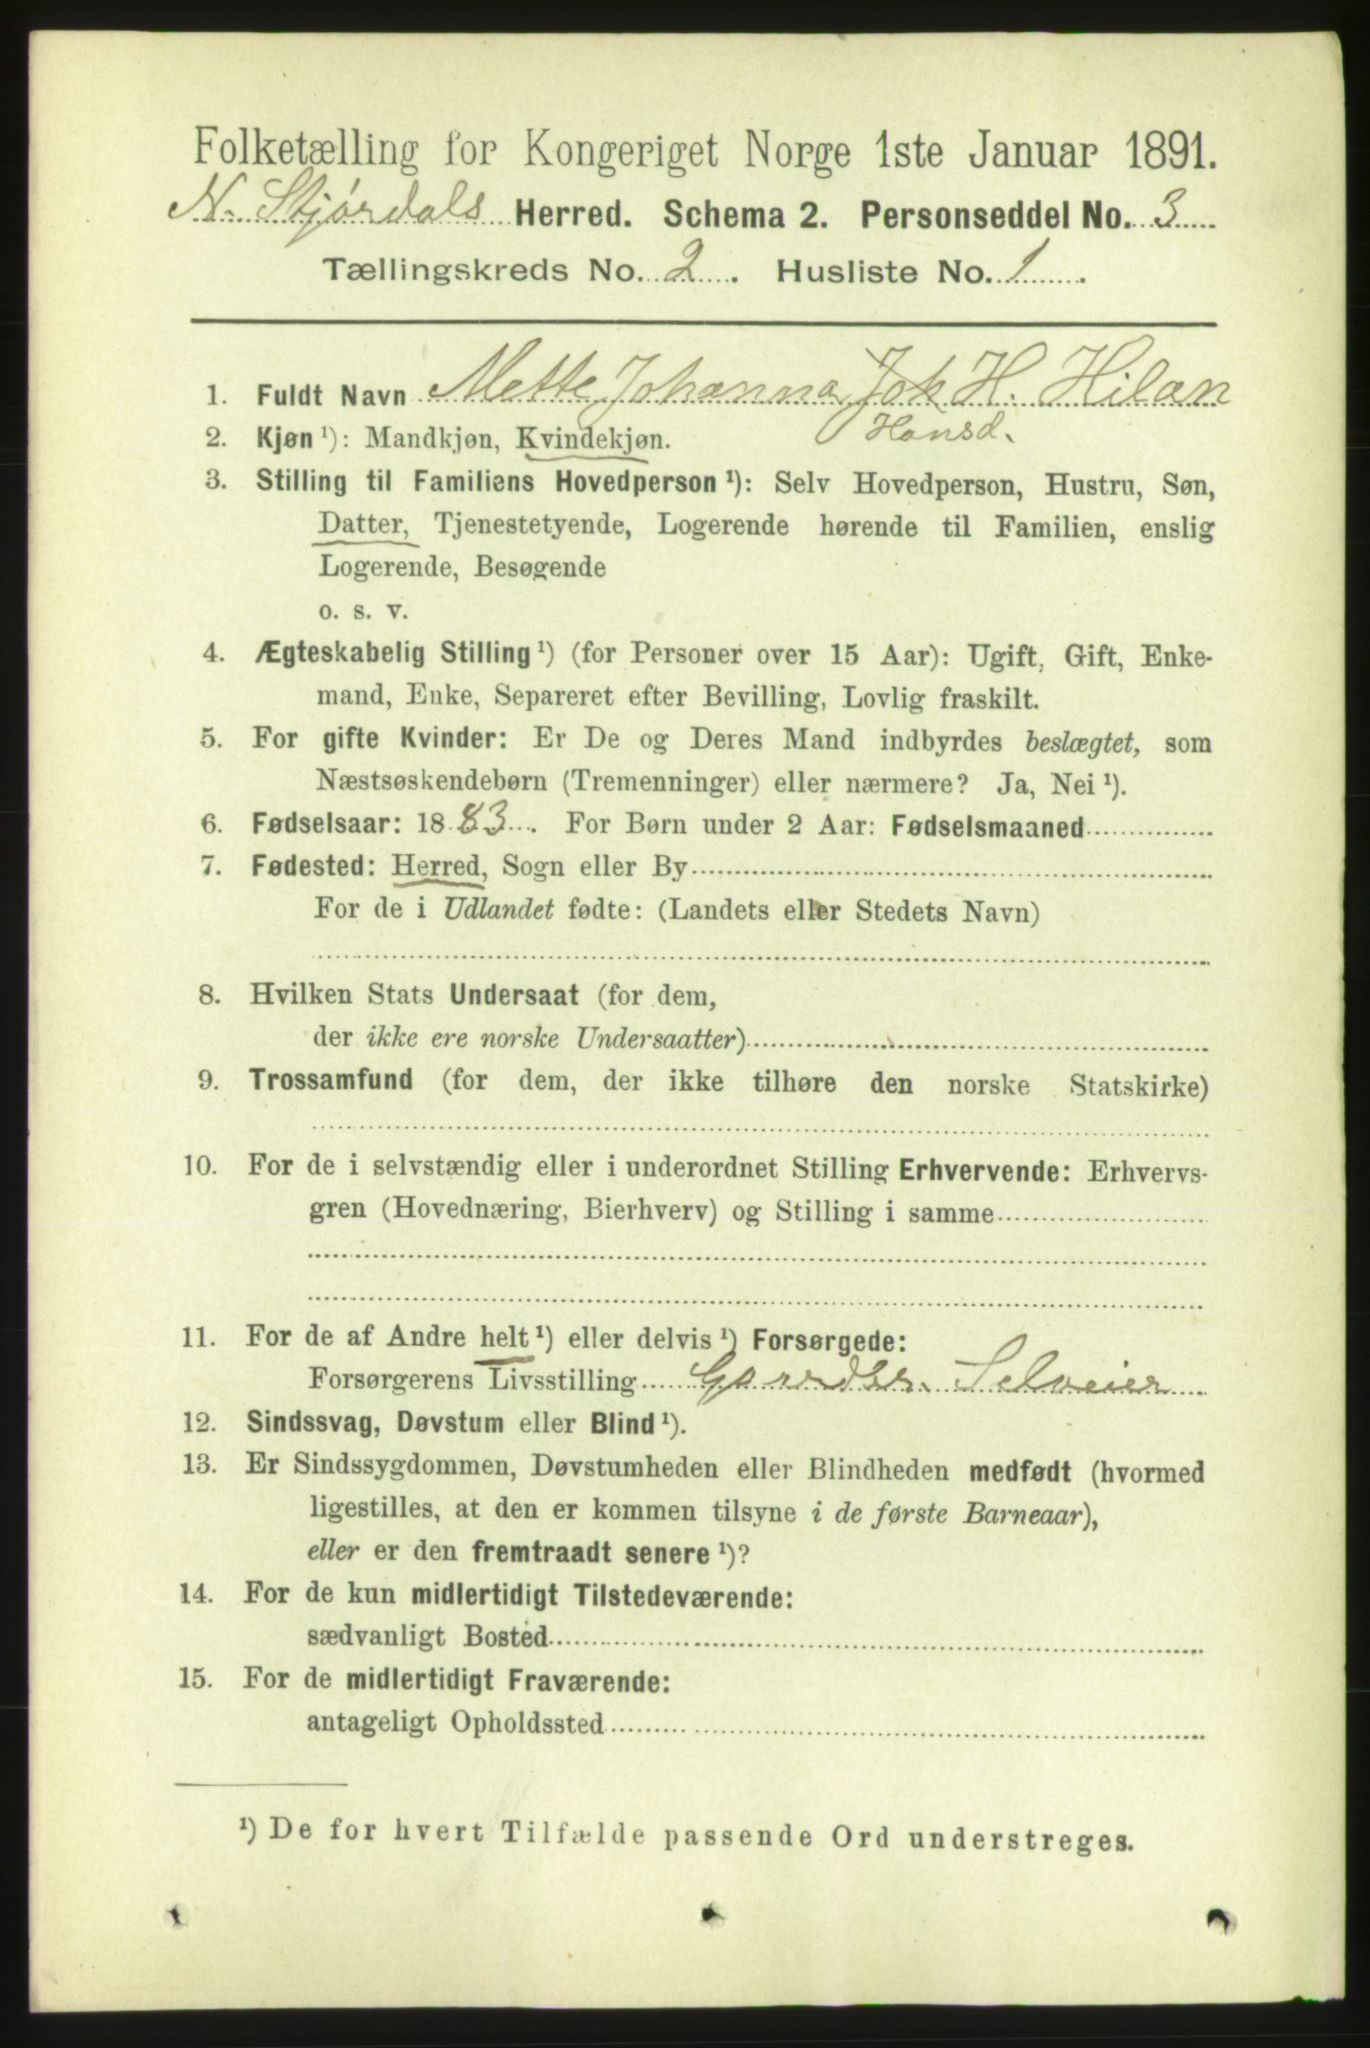 Folketælling for Kongeriget Norge 1ste Januar 1891.
N. Stjørdals Herred. Schema 2. Personseddel No. 3
Tællingskreds No. 2. Husliste No. 1.
1. Fuldt Navn Mette Johanna Joh H. Hilan
Hansd.
2. Kjøn ¹): Mandkjøn, Kvindekjøn.
3. Stilling til Familiens Hovedperson ¹): Selv Hovedperson, Hustru, Søn,
Datter, Tjenestetyende, Logerende hørende til Familien, enslig
Logerende, Besøgende
o. s. v.
4. Ægteskabelig Stilling ¹) (for Personer over 15 Aar): Ugift, Gift, Enke-
mand, Enke, Separeret efter Bevilling, Lovlig fraskilt.
5. For gifte Kvinder: Er De og Deres Mand indbyrdes beslægtet, som
Næstsøskendebørn (Tremenninger) eller nærmere? Ja, Nei ¹).
6. Fødselsaar: 1883. For Børn under 2 Aar: Fødselsmaaned
7. Fødested: Herred, Sogn eller By
For de i Udlandet fødte: (Landets eller Stedets Navn)
8. Hvilken Stats Undersaat (for dem,
der ikke ere norske Undersaatter)
9. Trossamfund (for dem, der ikke tilhøre den norske Statskirke)
10. For de i selvstændig eller i underordnet Stilling Erhvervende: Erhvervs-
gren (Hovednæring, Bierhverv) og Stilling i samme
11. For de af Andre helt ¹) eller delvis ¹) Forsørgede:
Forsørgerens Livsstilling Gaardbr. Selveier
12. Sindssvag, Døvstum eller Blind ¹).
13. Er Sindssygdommen, Døvstumheden eller Blindheden medfødt (hvormed
ligestilles, at den er kommen tilsyne i de første Barneaar),
eller er den fremtraadt senere ¹)?
14. For de kun midlertidigt Tilstedeværende:
sædvanligt Bosted
15. For de midlertidigt Fraværende:
antageligt Opholdssted
¹) De for hvert Tilfælde passende Ord understreges.